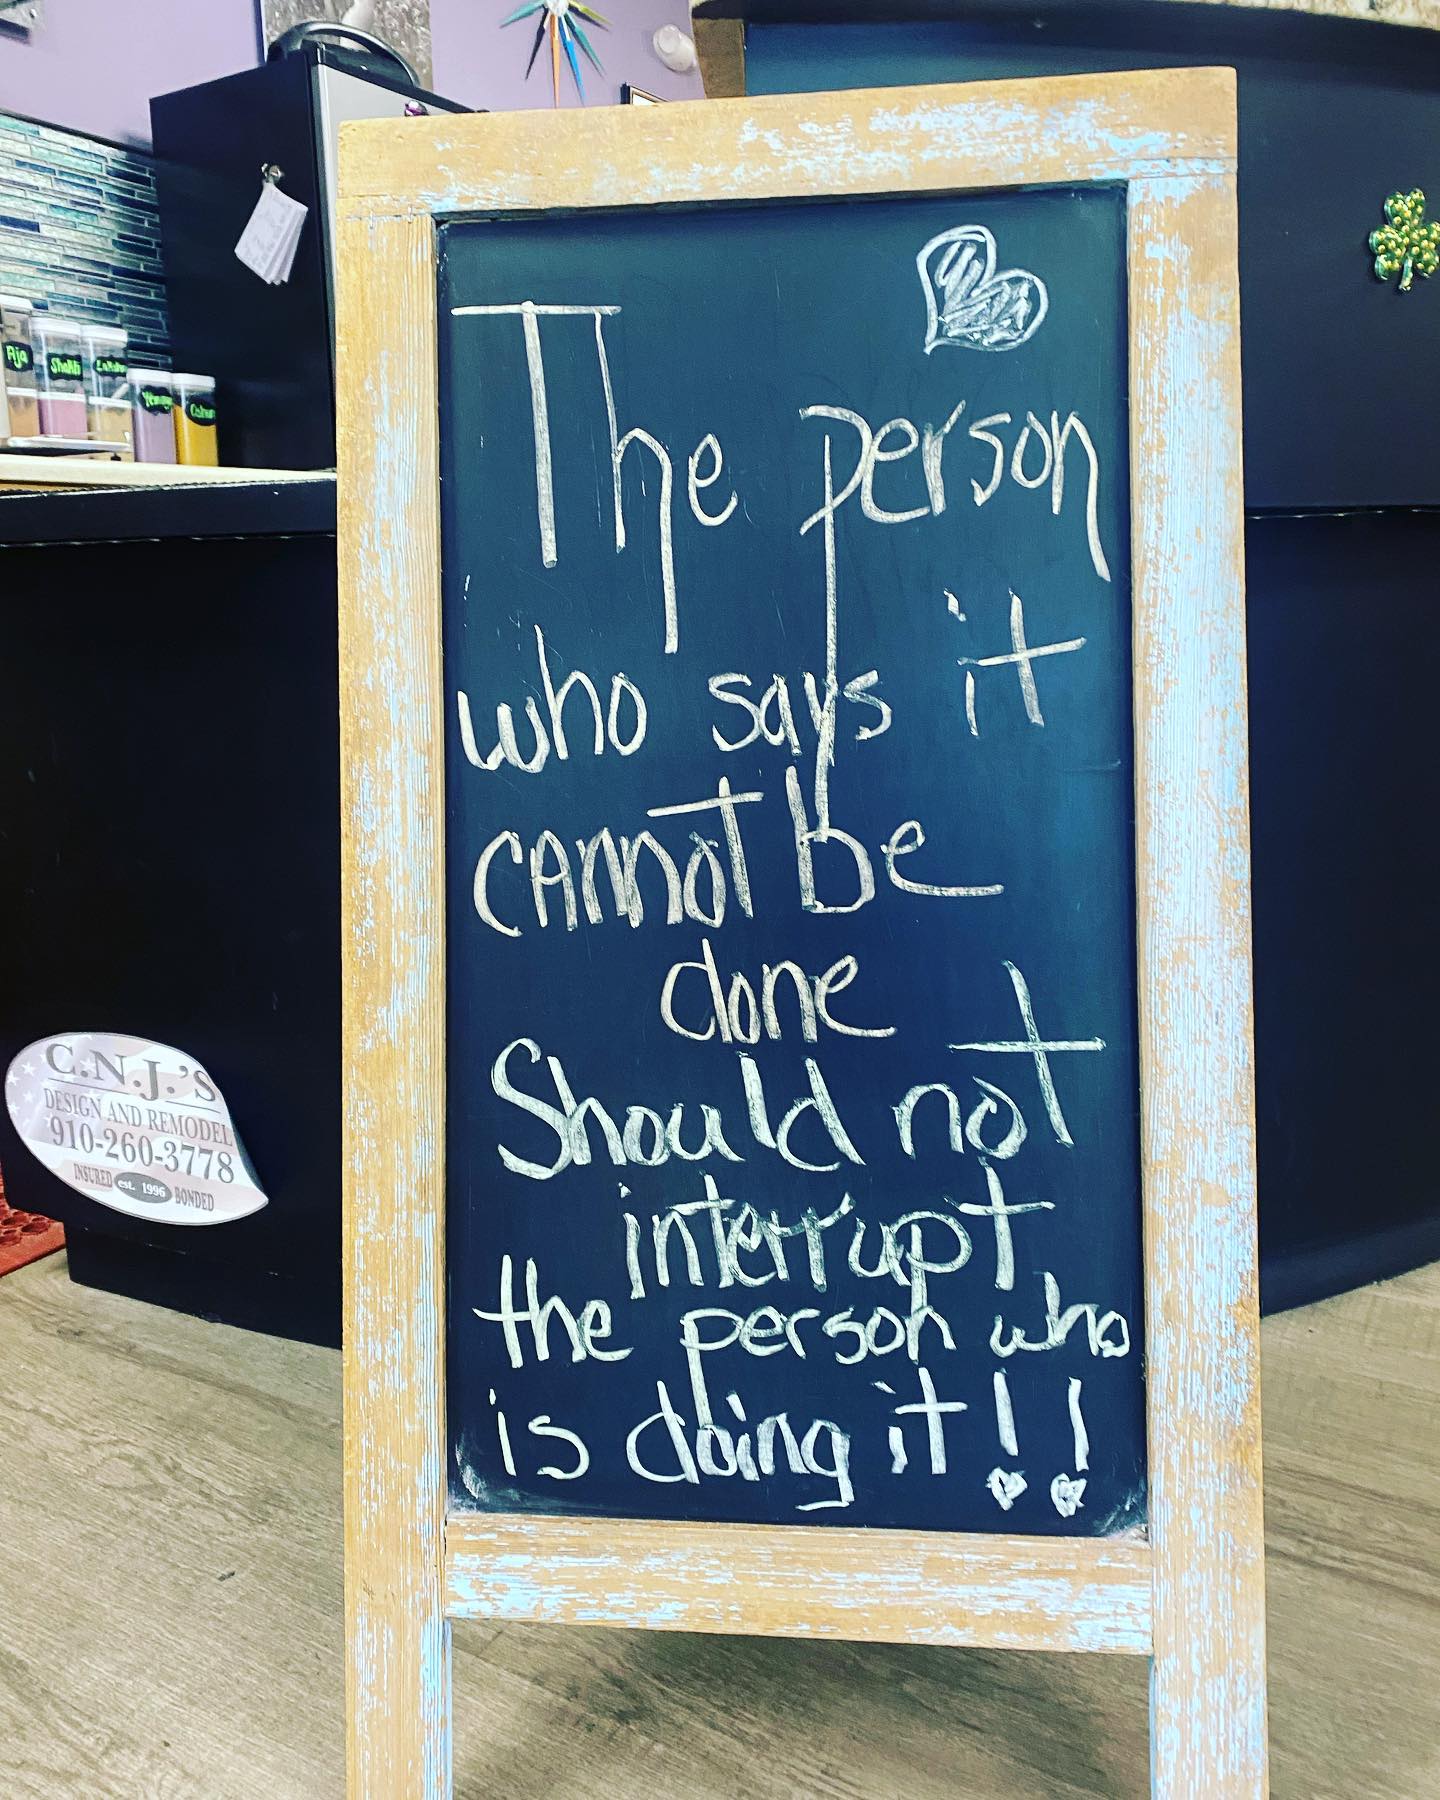 The person
who says it
cannot be
done
Should not
interrupt
the person who
is doing it!!
C.N.J.'S
DESIGN AND REMODEL
910-260-3778
INSURED est. 1996 BONDED
Shakti